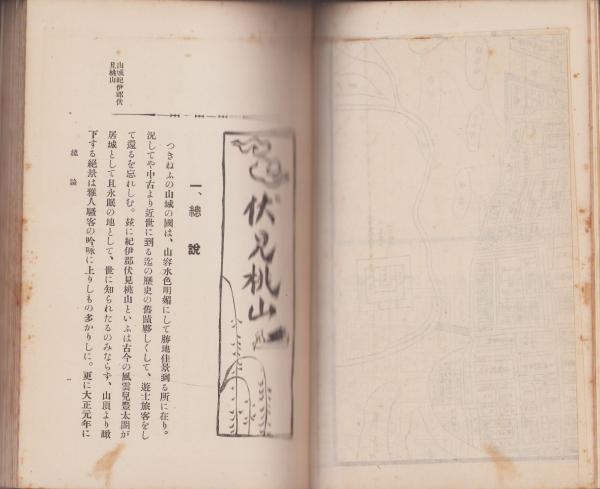 伏見桃山
一、總說
つきねふの山城の國は、山容水色明媚にして勝地佳景到る所に在り。
況してや中古より近世に到る迄の歷史の舊蹟夥しくして、遊士旅客をし
て還るを忘れしむ。玆に紀伊郡伏見桃山といふは古今の風雲兒豐太閤が
居城として且永眠の地として、世に知られたるのみならず、山頂より瞰
下する絕景は雅人騷客の吟咏に上りしもの多かりしに。更に大正元年に
山城紀伊郡伏
見桃山
總論